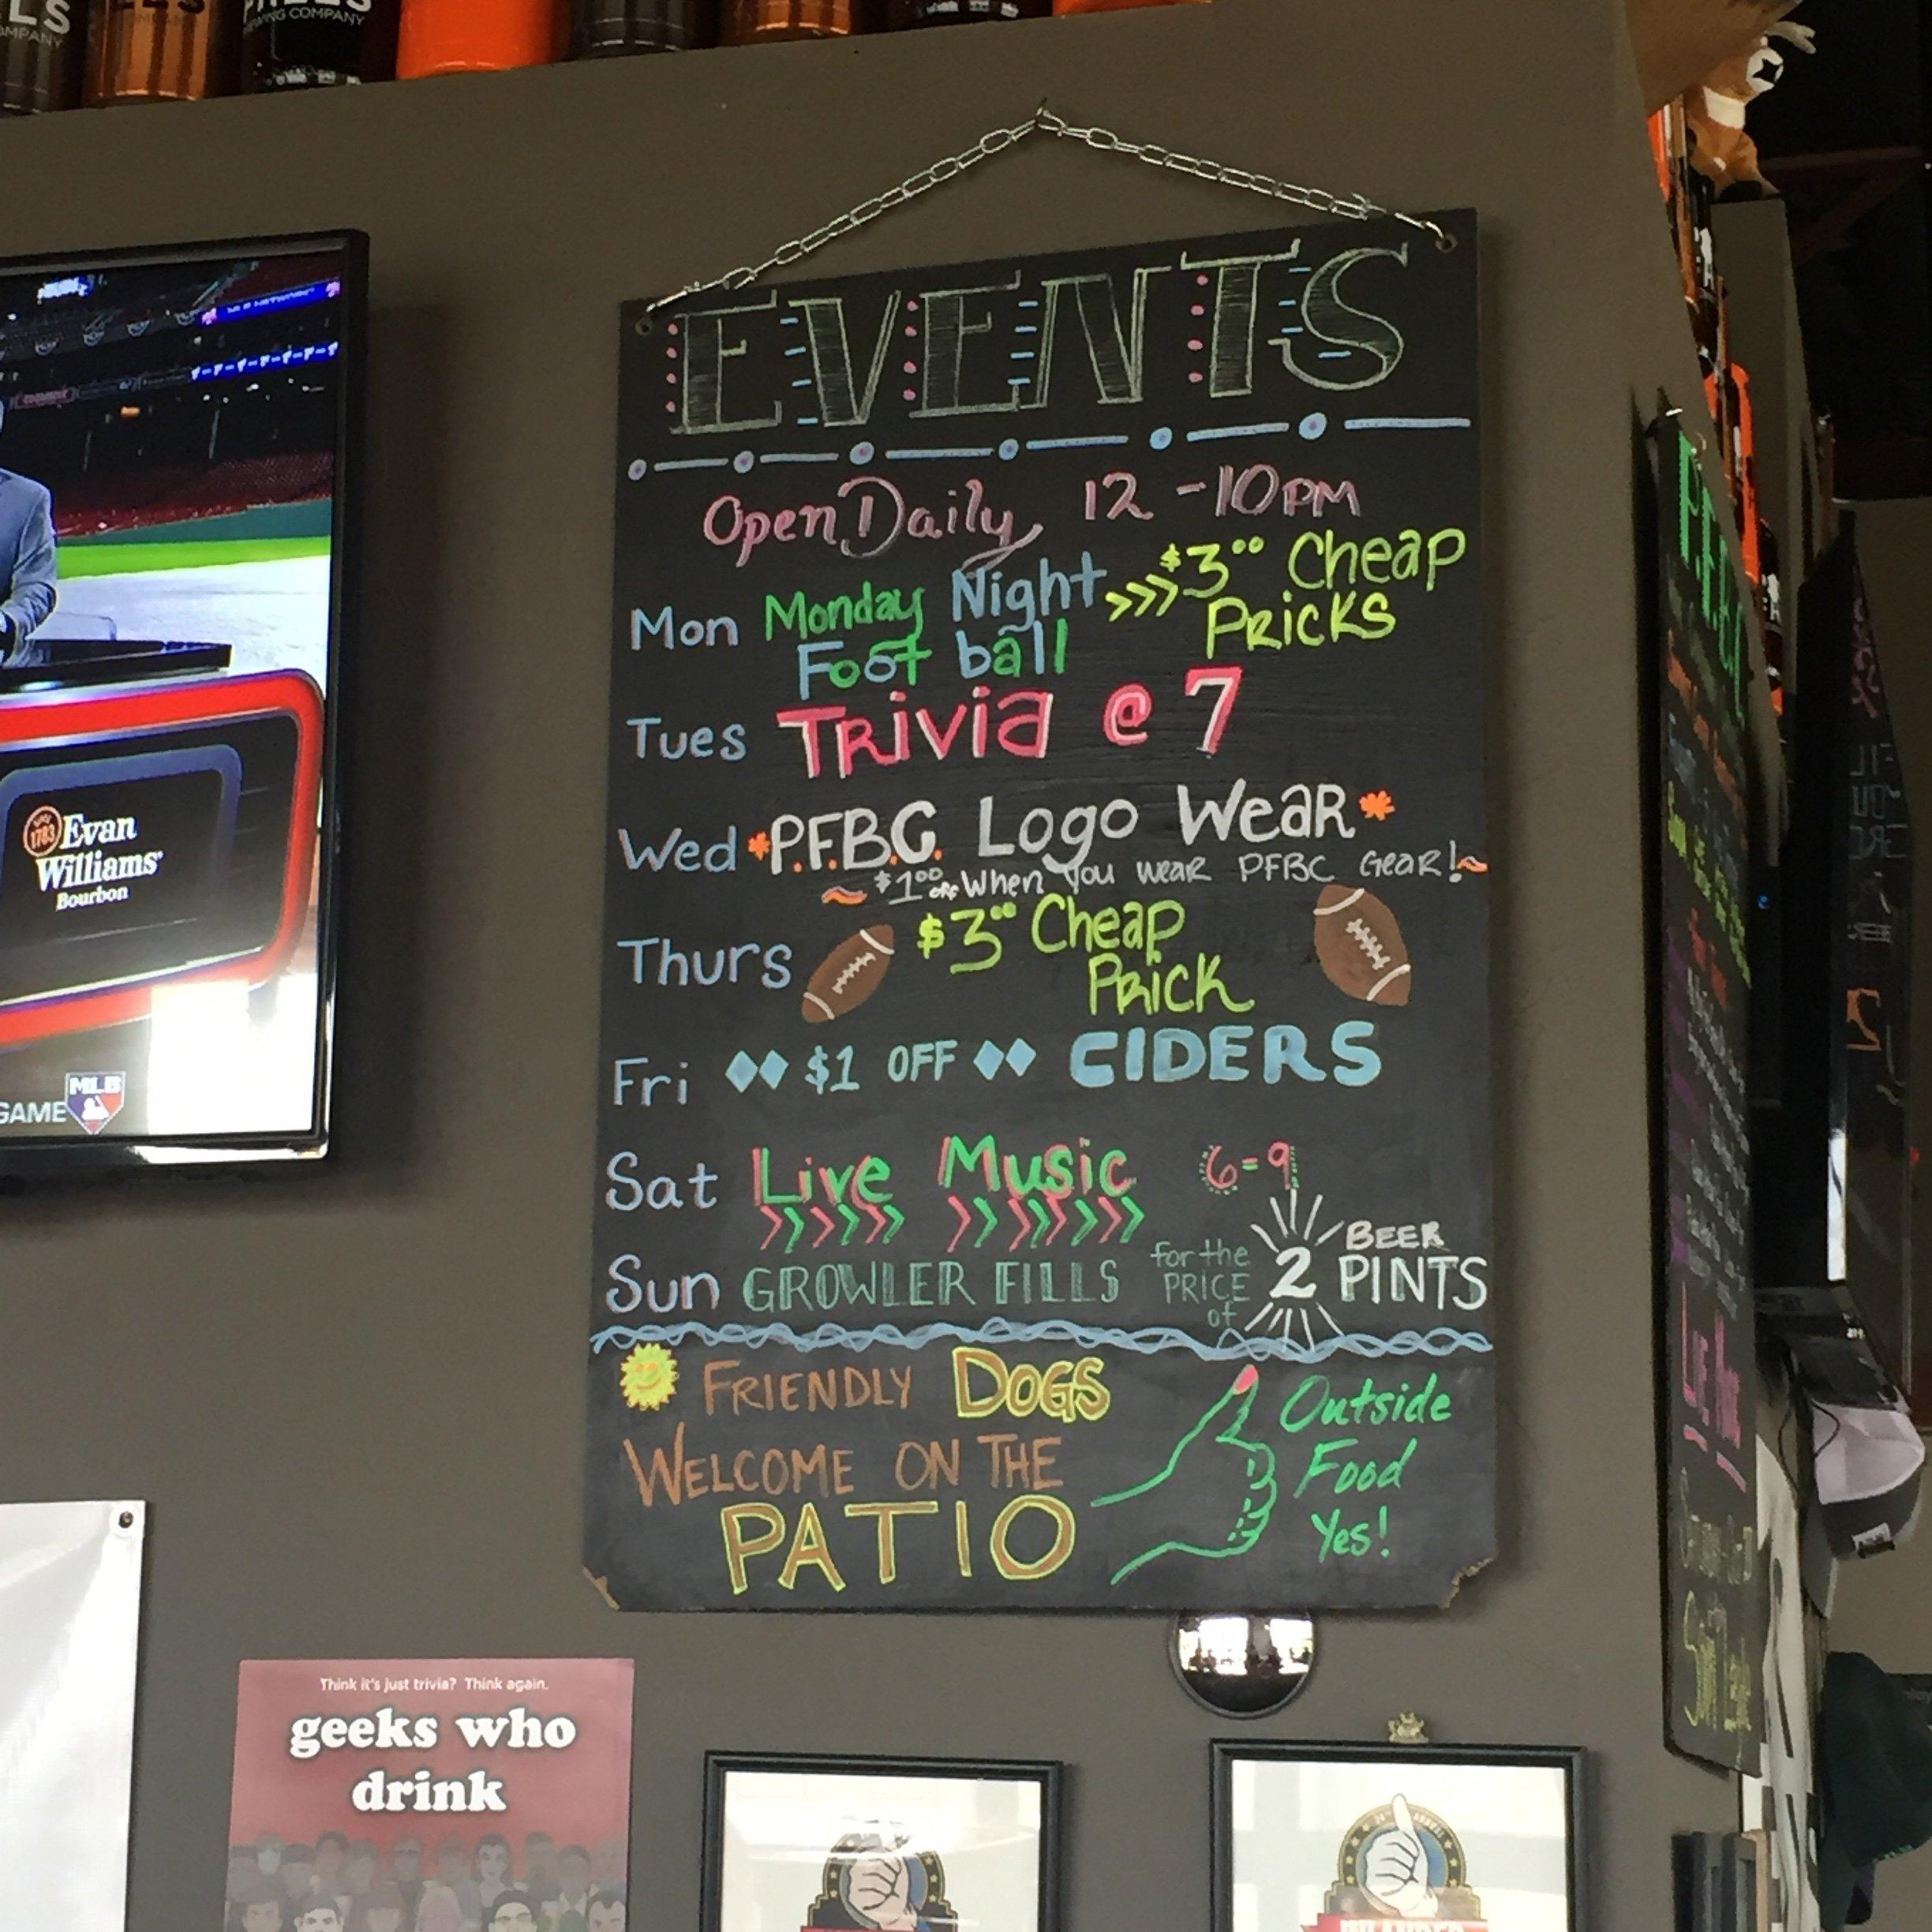 COMPANY
EVENTS
Open Daily 12-10PM
Mon Monday Night Foot ball >>> $3.00 Cheap Pricks
Tues Trivia @ 7
Wed *P.F.B.C. Logo Wear*
~$1.00 off When you wear PFBC Gear!~
Thurs $3.00 Cheap Prick
Fri $1 OFF CIDERS
Sat Live Music 6-9
Sun GROWLER FILLS for the PRICE of 2 BEER PINTS
FRIENDLY DOGS
WELCOME ON THE
PATIO
Outside
Food
Yes!
1783
Evan
Williams
Bourbon
GAME
MLB
Think it's just trivia? Think again.
geeks who
drink